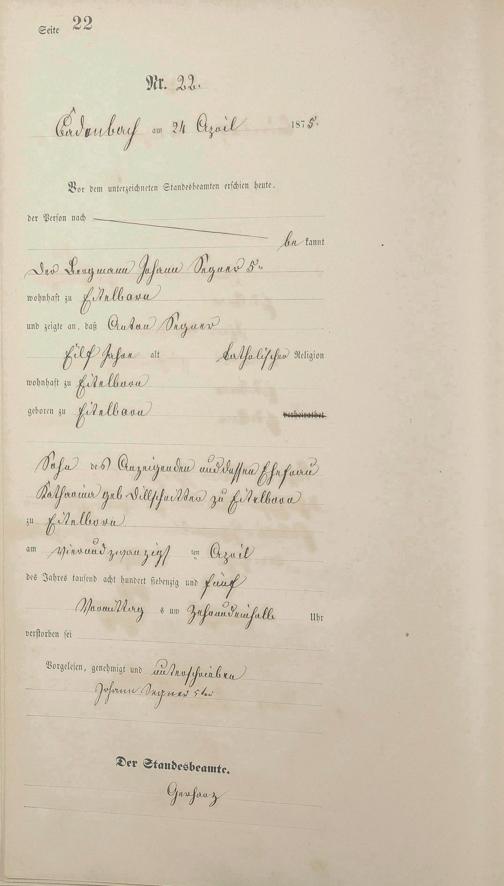 Seite 22
Nr. 22.
Cadenbach am 24 April 1875.
Vor dem unterzeichneten Standesbeamten erschien heute.
der Person nach
be kannt
Der Bergmann Johann Segner 5r
wohnhaft zu Eitelborn
und zeigte an, daß Anton Segner
Eilf Jahre alt katholischer Religion
wohnhaft zu Eitelborn
geboren zu Eitelborn verheirathet
Sohn des Anzeigenden und dessen Ehefrau
Katharina geb Dillschnitter zu Eitelborn
zu Eitelborn
am vierundzwanzigst ten April
des Jahres tausend acht hundert siebenzig und fünf
Vormittag s um Zehnundeinhalb Uhr
verstorben sei
Vorgelesen, genehmigt und unterschrieben
Johann Segner 5ter
Der Standesbeamte.
Gerharz